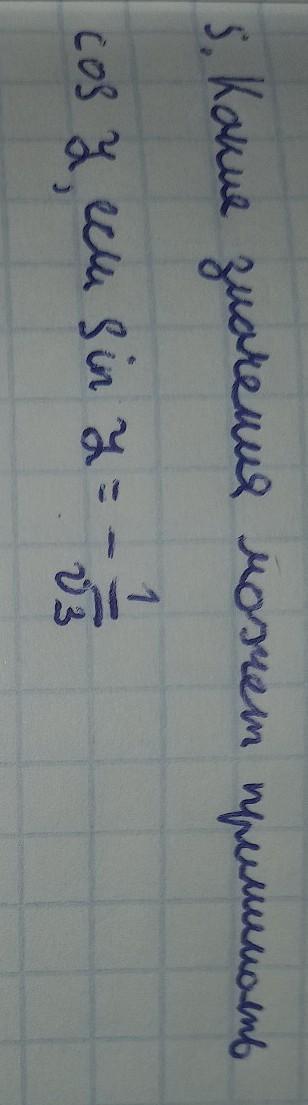 5. Какие значения может принимать
cos γ, если sin γ = - 1/√3